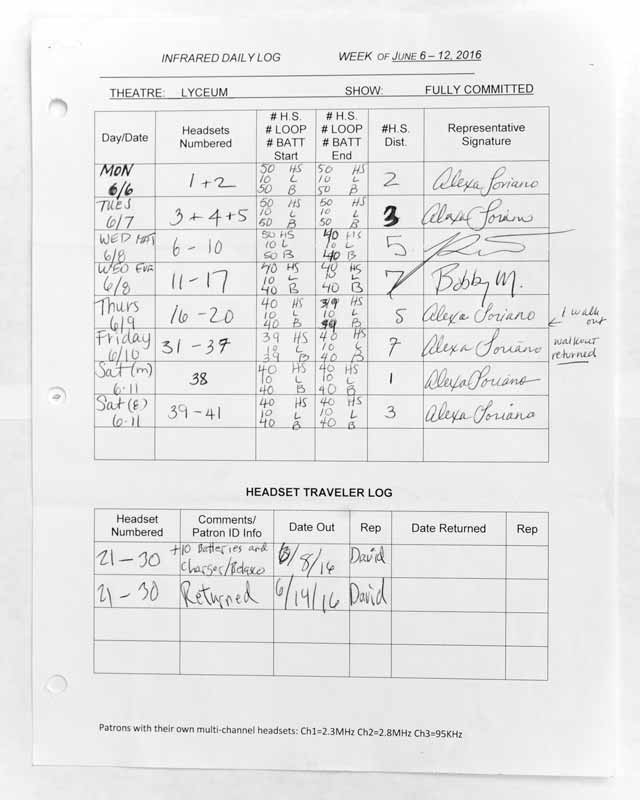 INFRARED DAILY LOG WEEK OF JUNE 6 – 12, 2016
THEATRE: LYCEUM SHOW: FULLY COMMITTED
Day/Date Headsets Numbered # H.S. # LOOP # BATT Start # H.S. # LOOP # BATT End #H.S. Dist. Representative Signature
MON 6/6 1 + 2 50 HS 10 L 50 B 50 HS 10 L 50 B 2 Alexa Soriano
TUES 6/7 3 + 4 + 5 50 HS 10 L 50 B 50 HS 10 L 50 B 3 Alexa Soriano
WED MAT 6/8 6 - 10 50 HS 10 L 50 B 40 HS 10 L 40 B 5
WED EVE 6/8 11 - 17 40 HS 10 L 40 B 40 HS 10 L 40 B 7 Bobby M.
Thurs 6/9 16 - 20 40 HS 10 L 40 B 39 HS 10 L 39 B 5 Alexa Soriano 1 walk out
Friday 6/10 31 - 37 39 HS 10 L 39 B 40 HS 10 L 40 B 7 Alexa Soriano walkout returned
Sat (m) 6.11 38 40 HS 10 L 40 B 40 HS 10 L 40 B 1 Alexa Soriano
Sat (E) 6.11 39 - 41 40 HS 10 L 40 B 40 HS 10 L 40 B 3 Alexa Soriano
HEADSET TRAVELER LOG
Headset Numbered Comments/ Patron ID Info Date Out Rep Date Returned Rep
21 - 30 +10 Batteries and Charger/Belasco 6/8/16 David
21 - 30 Returned 6/14/16 David
Patrons with their own multi-channel headsets: Ch1=2.3MHz Ch2=2.8MHz Ch3=95KHz